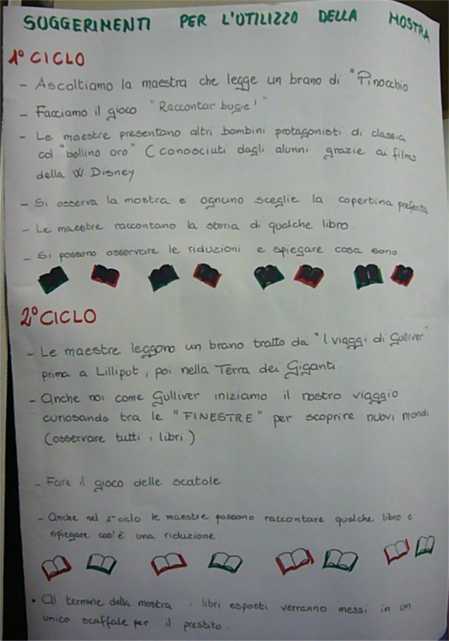 SUGGERIMENTI PER L'UTILIZZO DELLA MOSTRA
1° CICLO
- Ascoltiamo la maestra che legge un brano di "Pinocchio
- Facciamo il gioco "Raccontar bugie!"
- Le maestre presentano altri bambini protagonisti di classici
col "bollino oro" (conosciuti dagli alunni grazie ai films
della W. Disney
- Si osserva la mostra e ognuno sceglie la copertina preferita
- Le maestre raccontano la storia di qualche libro.
- Si possono osservare le riduzioni e spiegare cosa sono
2° CICLO
- Le maestre leggono un brano tratto da "I viaggi di Gulliver"
prima a Lilliput, poi nella Terra dei Giganti
- Anche noi come Gulliver iniziamo il nostro viaggio
curiosando tra le "FINESTRE" per scoprire nuovi mondi
(osservare tutti i libri)
- Fare il gioco delle scatole
- Anche nel 2° ciclo le maestre possono raccontare qualche libro e
spiegare cos'è una riduzione
• Al termine della mostra i libri esposti verranno messi in un
unico scaffale per il prestito.